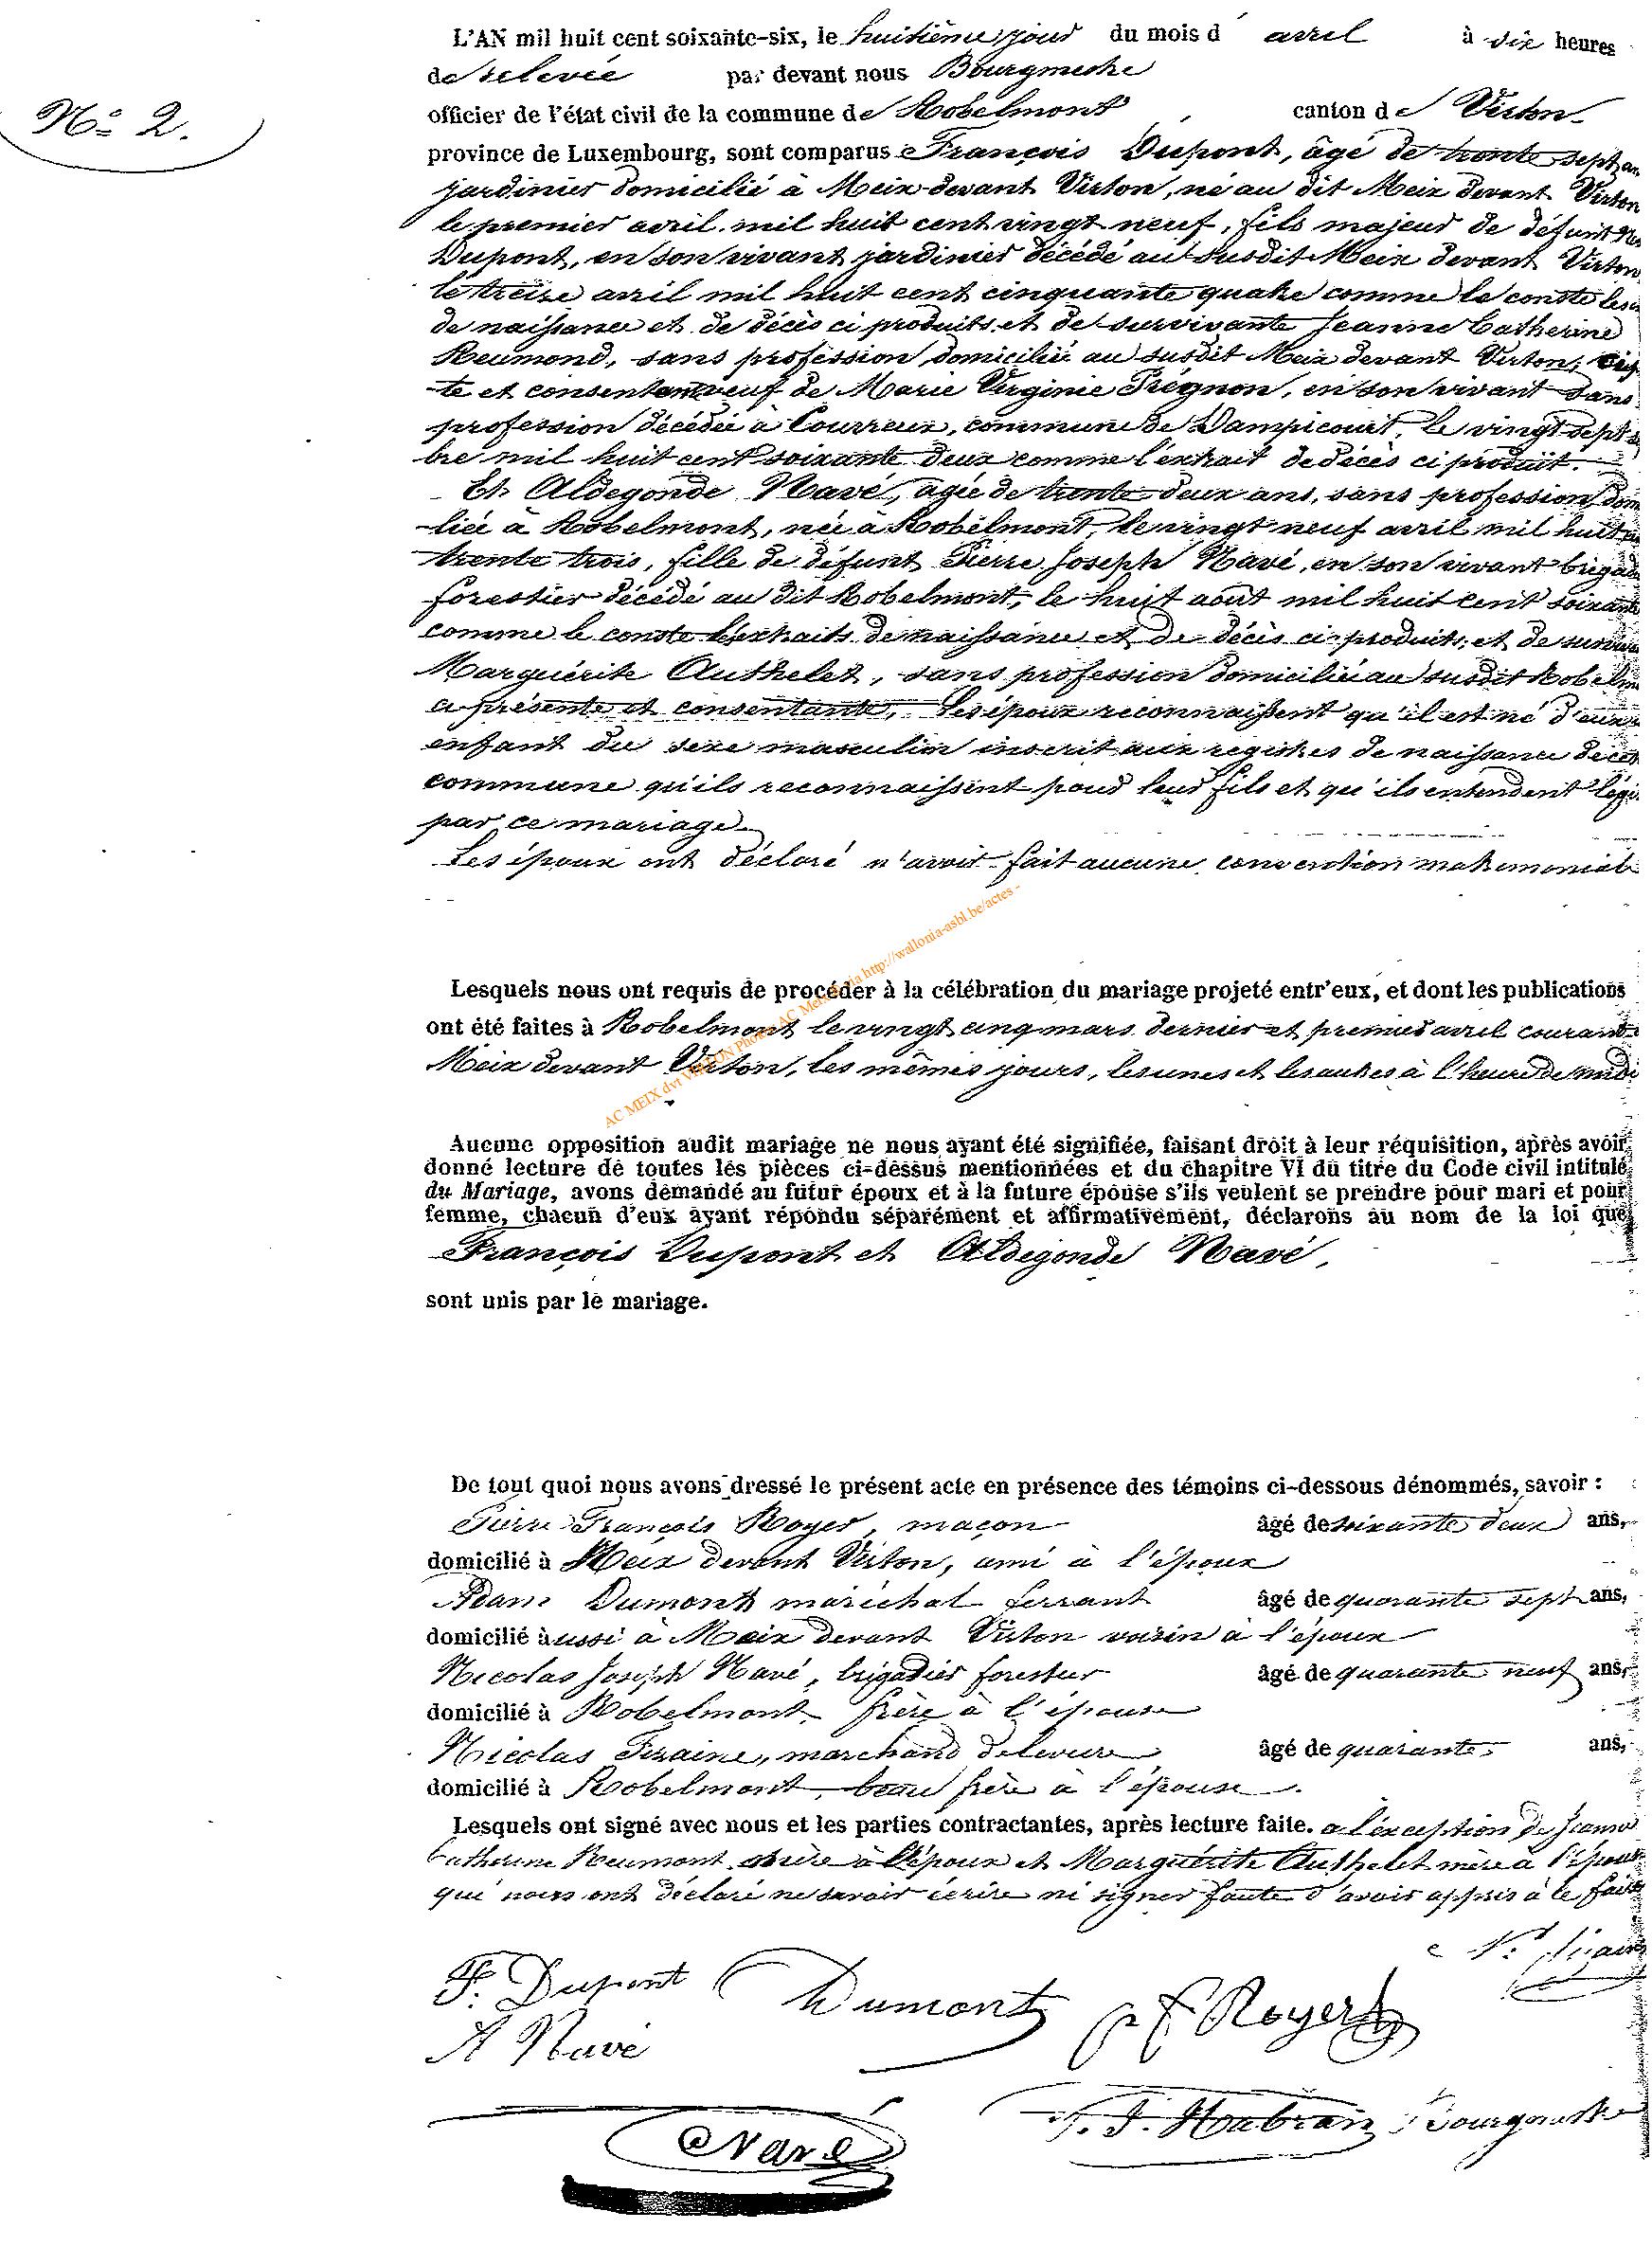 L'AN mil huit cent soixante-six, le huitième jour du mois d' avril à dix heures
de relevée par devant nous Bourgmestre
N° 2.
officier de l'état civil de la commune de Robelmont canton de Virton
province de Luxembourg, sont comparus François Dupont, âgé de trente sept ans
jardinier domicilié à Meix devant Virton, né au dit Meix devant Virton
le premier avril mil huit cent vingt neuf, fils majeur de défunt
Dupont, en son vivant jardinier décédé au susdit Meix devant Virton,
le treize avril mil huit cent cinquante quatre comme le conste les
de naissance et de décès ci produits et de survivante Jeanne Catherine
Reumond, sans profession domiciliée au susdit Meix devant Virton,
te et consentante veuf de Marie Virginie Prégnon, en son vivant sans
profession décédée à Couvreux, commune de Dampicourt, le vingt sept
bre mil huit cent soixante deux comme l'extrait de décès ci produit.
Et Aldegonde Navé, agée de trente deux ans, sans profession, dom
liée à Robelmont, née à Robelmont, le vingt neuf avril mil huit
trente trois, fille de défunt Pierre Joseph Navé, en son vivant brigad
forestier décédé au dit Robelmont, le huit août mil huit cent soixante
comme le conste l'extraits de naissance et de décès ci-produits, et de
Marguérite Authelet, sans profession domiciliée au susdit Robelm
ci présente et consentante, Les époux reconnaissent qu'il est né d'eux
enfant du sexe masculin inscrit aux registres de naissance de cet
commune qu'ils reconnaissent pour leur fils et qu'ils entendent légi
par ce mariage.
Les époux ont déclaré n'avoir fait aucune convention matrimoniale
AC MEIX dvt VIRTON Photos AC via http://wallonia-asbl.be/actes -
Lesquels nous ont requis de procéder à la célébration du mariage projeté entr'eux, et dont les publications
ont été faites à Robelmont le vingt cinq mars dernier et premier avril courant
Meix devant Virton, les mêmes jours, les unes et les autres à l'heure de midi
Aucune opposition audit mariage ne nous ayant été signifiée, faisant droit à leur réquisition, après avoir
donné lecture de toutes les pièces ci-dessus mentionnées et du chapitre VI du titre du Code civil intitulé
du Mariage, avons demandé au futur époux et à la future épouse s'ils veulent se prendre pour mari et pour
femme, chacun d'eux ayant répondu séparément et affirmativement, déclarons au nom de la loi que
François Dupont et Aldegonde Navé,
sont unis par le mariage.
De tout quoi nous avons dressé le présent acte en présence des témoins ci-dessous dénommés, savoir :
Pierre François Royer, maçon âgé de soixante deux ans,
domicilié à Meix devant Virton, ami à l'époux
Adam Dumont maréchal ferrant âgé de quarante sept ans,
domicilié à ussi à Meix devant Virton voisin à l'époux
Nicolas Joseph Navé, brigadier forestier âgé de quarante neuf ans,
domicilié à Robelmont, frère à l'épouse
Nicolas Fizaine, marchand de levure âgé de quarante ans,
domicilié à Robelmont, beau frère à l'épouse.
Lesquels ont signé avec nous et les parties contractantes, après lecture faite. a l'éxception de Jeanne
Catherine Reumont mère à l'époux et Marguérite Authelet mère à l'épouse
qui nous ont déclaré ne savoir écrire ni signer faute d'avoir appris à le faire
N. Fizaine
F. Dupont Dumont p f Royer
A Navé
Navé
F. J. Habran Bourgmestre